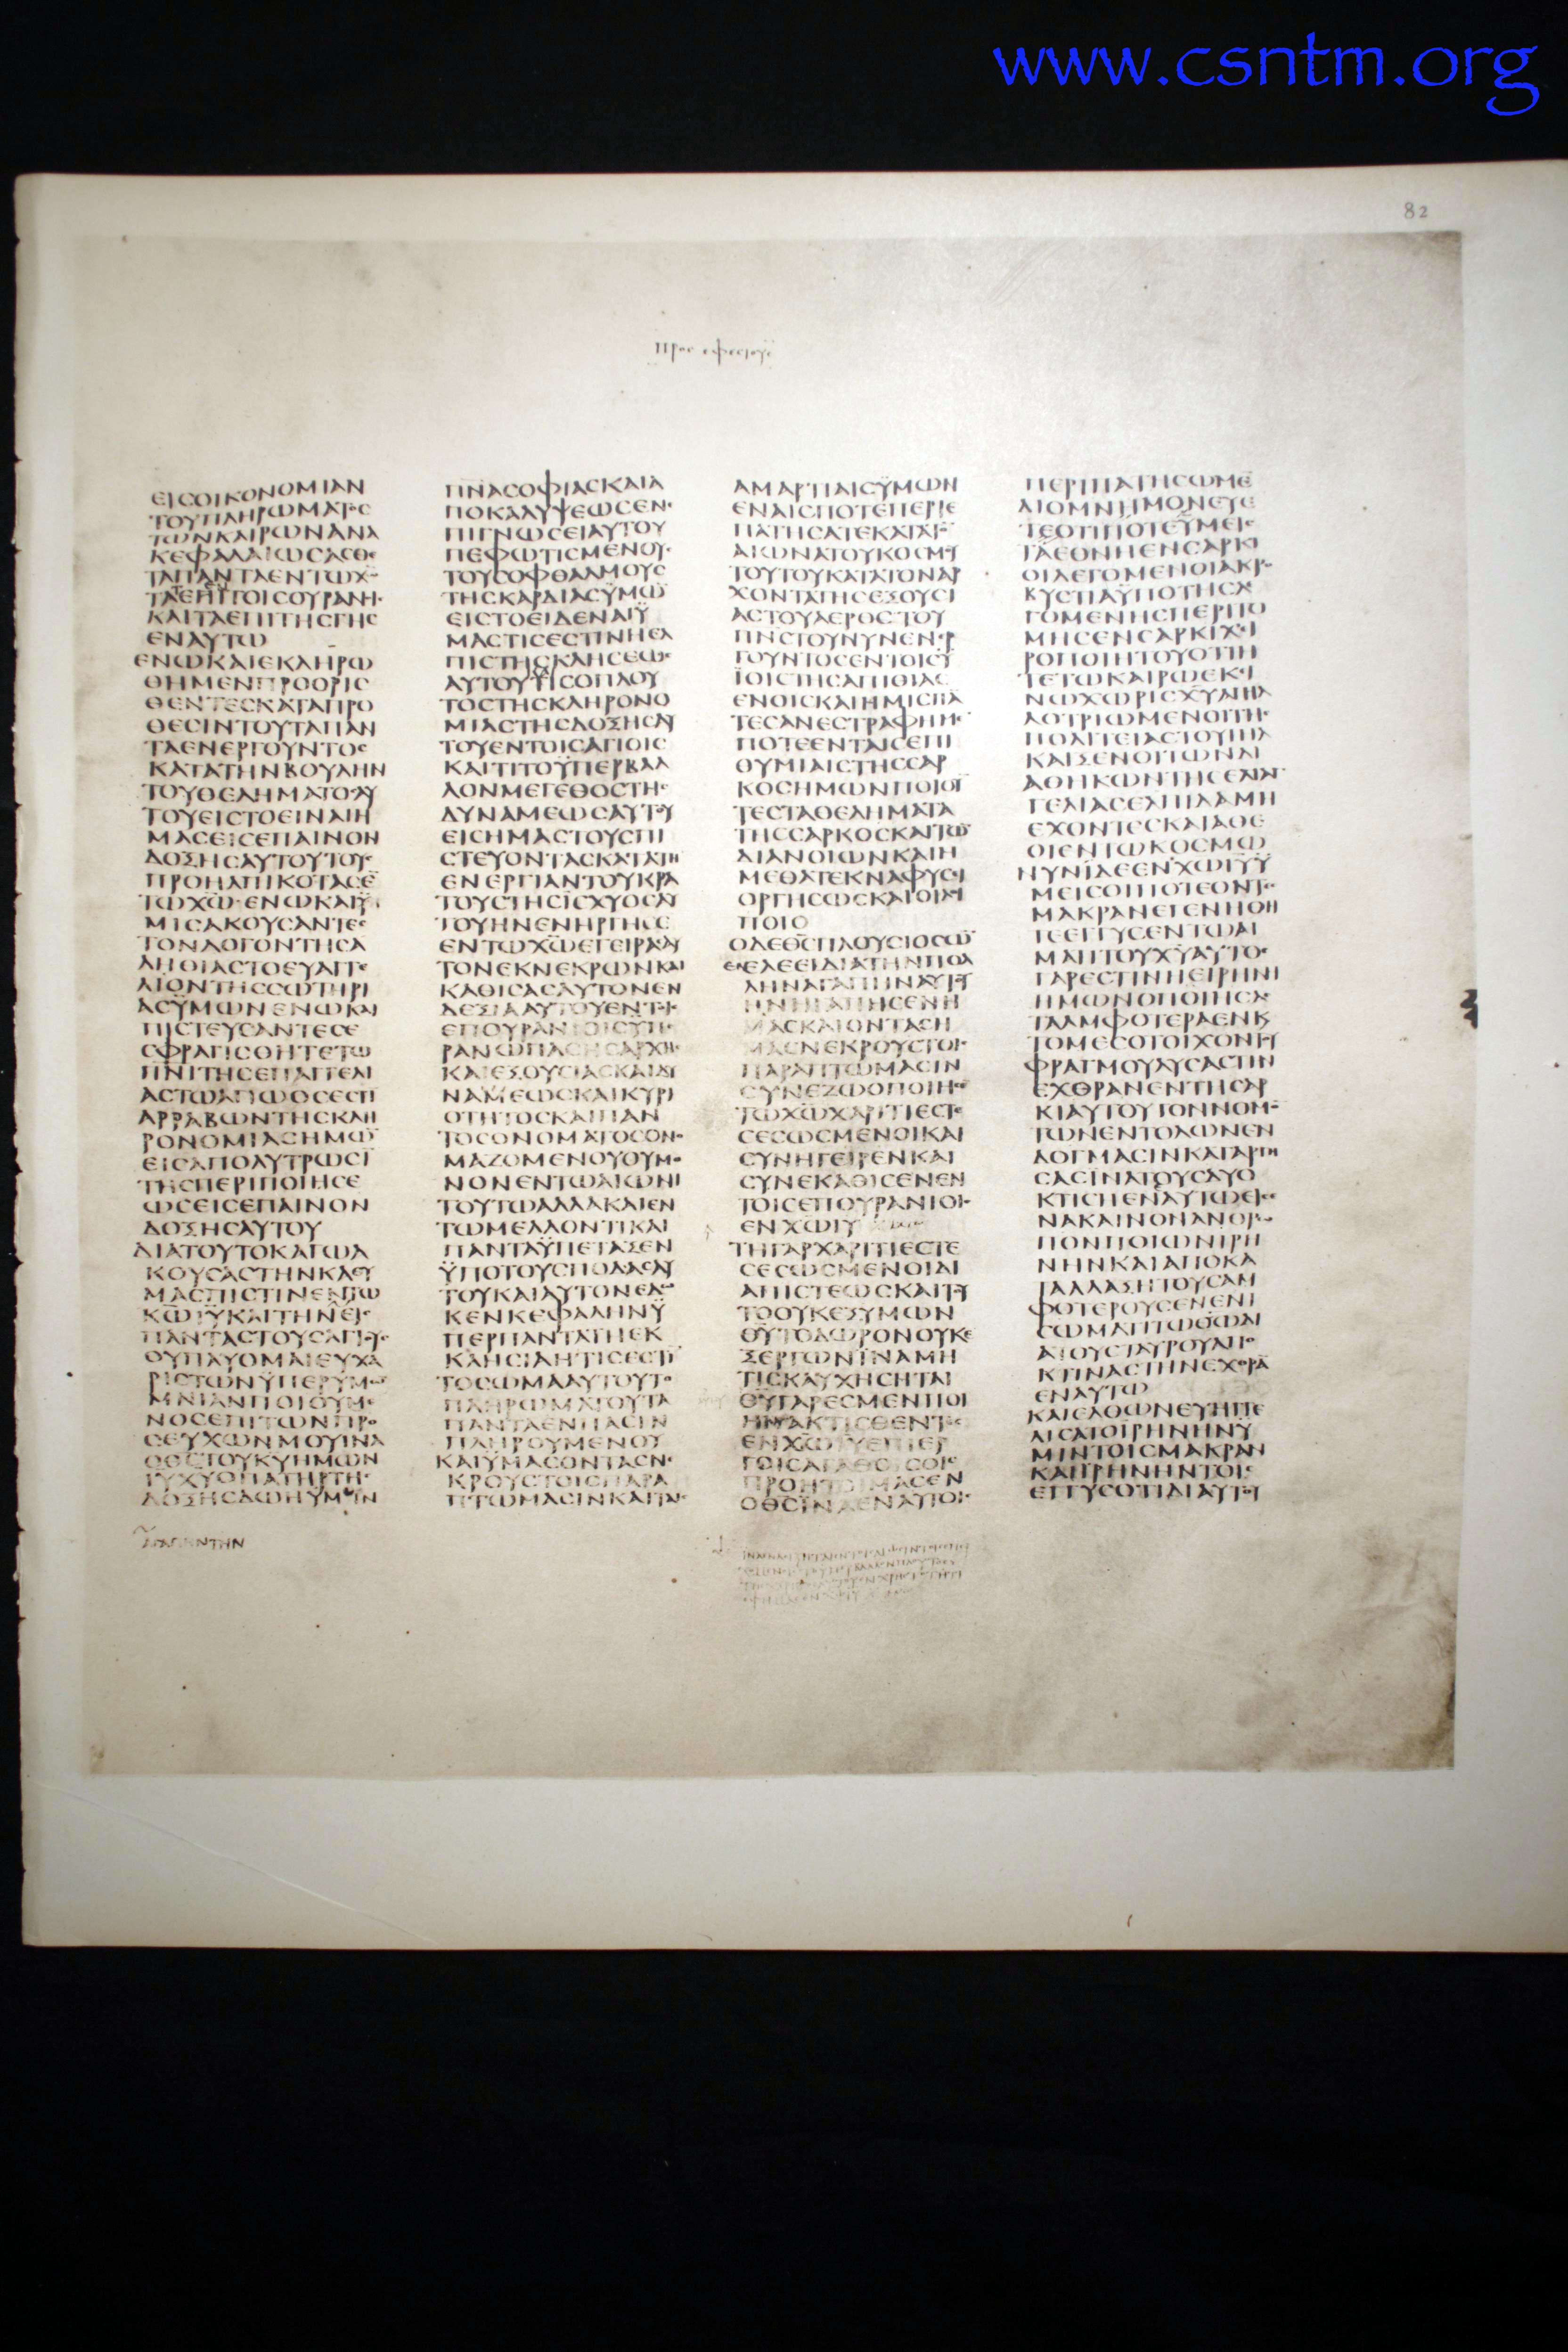 www.csntm.org
82
προσ εφεσιους
ΕΙΣΟΙΚΟΝΟΜΙΑΝ
ΤΟΥΠΛΗΡΩΜΑΤΟΣ
ΤΩΝΚΑΙΡΩΝΑΝΑ
ΚΕΦΑΛΑΙΩΣΑΣΘΕ
ΤΑΠΑΝΤΑΕΝΤΩΧ
ΚΑΙΤΑΕΠΙΤΗΣΓΗΣ
ΕΝΑΥΤΩ
ΕΝΩΚΑΙΕΚΛΗΡΩ
ΘΗΜΕΝΠΡΟΟΡΙΣ
ΘΕΝΤΕΣΚΑΤΑΠΡΟ
ΘΕΣΙΝΤΟΥΤΑΠΑΝ
ΤΑΕΝΕΡΓΟΥΝΤΟΣ
ΚΑΤΑΤΗΝΒΟΥΛΗΝ
ΤΟΥΘΕΛΗΜΑΤΟΣΑΥ
ΤΟΥΕΙΣΤΟΕΙΝΑΙΗ
ΜΑΣΕΙΣΕΠΑΙΝΟΝ
ΔΟΞΗΣΑΥΤΟΥΤΟΥΣ
ΠΡΟΗΛΠΙΚΟΤΑΣΕ̅
ΤΩΧ̅Ω̅ΕΝΩΚΑΙΫ
ΜΙΣΑΚΟΥΣΑΝΤΕΣ
ΤΟΝΛΟΓΟΝΤΗΣΑ
ΛΗΘΙΑΣΤΟΕΥΑΓΓΕ
ΛΙΟΝΤΗΣΣΩΤΗΡΙ
ΑΣΫΜΩΝΕΝΩΚΑΙ
ΠΙΣΤΕΥΣΑΝΤΕΣΕ
ΣΦΡΑΓΙΣΘΗΤΕΤΩ
Π̅Ν̅Ι̅ΤΗΣΕΠΑΓΓΕΛΙ
ΑΣΤΩΑΓΙΩΟΣΕΣΤΙ
ΑΡΡΑΒΩΝΤΗΣΚΛΗ
ΡΟΝΟΜΙΑΣΗΜΩ̅
ΕΙΣΑΠΟΛΥΤΡΩΣΙ̅
ΤΗΣΠΕΡΙΠΟΙΗΣΕ
ΩΣΕΙΣΕΠΑΙΝΟΝ
ΔΟΞΗΣΑΥΤΟΥ
ΔΙΑΤΟΥΤΟΚΑΓΩΑ
ΚΟΥΣΑΣΤΗΝΚΑΘΥ
ΜΑΣΠΙΣΤΙΝΕΝΤΩ
Κ̅Ω̅Ι̅Υ̅ΚΑΙΤΗΝΕΙΣ
ΠΑΝΤΑΣΤΟΥΣΑΓΙΟΥΣ
ΟΥΠΑΥΟΜΑΙΕΥΧΑ
ΡΙΣΤΩΝΫΠΕΡΫΜΩ
ΜΝΙΑΝΠΟΙΟΥΜΕ
ΝΟΣΕΠΙΤΩΝΠΡΟ
ΣΕΥΧΩΝΜΟΥΙΝΑ
Ο̅Θ̅Σ̅ΤΟΥΚ̅Υ̅ΗΜΩΝ
Ι̅Υ̅Χ̅Υ̅ΟΠΑΤΗΡΤΗΣ
ΔΟΞΗΣΔΩΗΫΜΙΝ
Π̅Ν̅Α̅ΣΟΦΙΑΣΚΑΙΑ
ΠΟΚΑΛΥΨΕΩΣΕΝΕ
ΠΙΓΝΩΣΕΙΑΥΤΟΥ
ΠΕΦΩΤΙΣΜΕΝΟΥΣ
ΤΟΥΣΟΦΘΑΛΜΟΥΣ
ΤΗΣΚΑΡΔΙΑΣΫΜΩ̅
ΕΙΣΤΟΕΙΔΕΝΑΙΫ
ΜΑΣΤΙΣΕΣΤΙΝΗΕΛ
ΠΙΣΤΗΣΚΛΗΣΕΩΣ
ΑΥΤΟΥΤΙΣΟΠΛΟΥ
ΤΟΣΤΗΣΚΛΗΡΟΝΟ
ΜΙΑΣΤΗΣΔΟΞΗΣΑΥ
ΤΟΥΕΝΤΟΙΣΑΓΙΟΙΣ
ΚΑΙΤΙΤΟΫΠΕΡΒΑΛ
ΛΟΝΜΕΓΕΘΟΣΤΗΣ
ΔΥΝΑΜΕΩΣΑΥΤΟΥ
ΕΙΣΗΜΑΣΤΟΥΣΠΙ
ΣΤΕΥΟΝΤΑΣΚΑΤΑΤΗ
ΕΝΕΡΓΙΑΝΤΟΥΚΡΑ
ΤΟΥΣΤΗΣΪΣΧΥΟΣΑΥ
ΤΟΥΗΝΕΝΗΡΓΗΣΕ
ΕΝΤΩΧ̅Ω̅ΕΓΕΙΡΑΣΑΥ
ΤΟΝΕΚΝΕΚΡΩΝΚΑΙ
ΚΑΘΙΣΑΣΑΥΤΟΝΕΝ
ΔΕΞΙΑΑΥΤΟΥΕΝΤΟΙΣ
ΕΠΟΥΡΑΝΙΟΙΣΫΠΕ
ΡΑΝΩΠΑΣΗΣΑΡΧΗΣ
ΚΑΙΕΞΟΥΣΙΑΣΚΑΙΔΥ
ΝΑΜΕΩΣΚΑΙΚΥΡΙ
ΟΤΗΤΟΣΚΑΙΠΑΝ
ΤΟΣΟΝΟΜΑΤΟΣΟΝΟ
ΜΑΖΟΜΕΝΟΥΟΥΜΟ
ΝΟΝΕΝΤΩΑΙΩΝΙ
ΤΟΥΤΩΑΛΛΑΚΑΙΕΝ
ΤΩΜΕΛΛΟΝΤΙΚΑΙ
ΠΑΝΤΑΫΠΕΤΑΞΕΝ
ΫΠΟΤΟΥΣΠΟΔΑΣΑΥ
ΤΟΥΚΑΙΑΥΤΟΝΕΔΩ
ΚΕΝΚΕΦΑΛΗΝΫ
ΠΕΡΠΑΝΤΑΤΗΕΚ
ΚΛΗΣΙΑΗΤΙΣΕΣΤΙ̅
ΤΟΣΩΜΑΑΥΤΟΥΤΟ
ΠΛΗΡΩΜΑΤΟΥΤΑ
ΠΑΝΤΑΕΝΠΑΣΙΝ
ΠΛΗΡΟΥΜΕΝΟΥ
ΚΑΙΫΜΑΣΟΝΤΑΣΝΕ
ΚΡΟΥΣΤΟΙΣΠΑΡΑ
ΠΤΩΜΑΣΙΝΚΑΙΤΑΙΣ
ΑΜΑΡΤΙΑΙΣΫΜΩΝ
ΕΝΑΙΣΠΟΤΕΠΕΡΙΕ
ΠΑΤΗΣΑΤΕΚΑΤΑΤΟ
ΑΙΩΝΑΤΟΥΚΟΣΜΟΥ
ΤΟΥΤΟΥΚΑΤΑΤΟΝΑΡ
ΧΟΝΤΑΤΗΣΕΞΟΥΣΙ
ΑΣΤΟΥΑΕΡΟΣΤΟΥ
Π̅Ν̅Σ̅ΤΟΥΝΥΝΕΝΕΡ
ΓΟΥΝΤΟΣΕΝΤΟΙΣΫ
ΪΟΙΣΤΗΣΑΠΙΘΙΑΣ
ΕΝΟΙΣΚΑΙΗΜΙΣΠΑ̅
ΤΕΣΑΝΕΣΤΡΑΦΗΜΕ
ΠΟΤΕΕΝΤΑΙΣΕΠΙ
ΘΥΜΙΑΙΣΤΗΣΣΑΡ
ΚΟΣΗΜΩΝΠΟΙΟΥ̅
ΤΕΣΤΑΘΕΛΗΜΑΤΑ
ΤΗΣΣΑΡΚΟΣΚΑΙΤΩ̅
ΔΙΑΝΟΙΩΝΚΑΙΗ
ΜΕΘΑΤΕΚΝΑΦΥΣΕΙ
ΟΡΓΗΣΩΣΚΑΙΟΙΛΟΙ
ΠΟΙΟ
ΟΔΕΘ̅Σ̅ΠΛΟΥΣΙΟΣΩ̅
ΕΝΕΛΕΕΙΔΙΑΤΗΝΠΟΛ
ΛΗΝΑΓΑΠΗΝΑΥΤΟΥ
ΗΝΗΓΑΠΗΣΕΝΗ
ΜΑΣΚΑΙΟΝΤΑΣΗ
ΜΑΣΝΕΚΡΟΥΣΤΟΙΣ
ΠΑΡΑΠΤΩΜΑΣΙΝ
ΣΥΝΕΖΩΟΠΟΙΗΣΕ
ΤΩΧ̅Ω̅ΧΑΡΙΤΙΕΣΤΕ
ΣΕΣΩΣΜΕΝΟΙΚΑΙ
ΣΥΝΗΓΕΙΡΕΝΚΑΙ
ΣΥΝΕΚΑΘΙΣΕΝΕΝ
ΤΟΙΣΕΠΟΥΡΑΝΙΟΙΣ
ΕΝΧ̅Ω̅Ι̅Υ̅
ΤΗΓΑΡΧΑΡΙΤΙΕΣΤΕ
ΣΕΣΩΣΜΕΝΟΙΔΙ
ΑΠΙΣΤΕΩΣΚΑΙΤΟΥ
ΤΟΟΥΚΕΞΥΜΩΝ
Θ̅Υ̅ΤΟΔΩΡΟΝΟΥΚΕ
ΞΕΡΓΩΝΪΝΑΜΗ
ΤΙΣΚΑΥΧΗΣΗΤΑΙ
Θ̅Υ̅ΓΑΡΕΣΜΕΝΠΟΙ
ΗΜΑΚΤΙΣΘΕΝΤΕΣ
ΕΝΧ̅Ω̅Ι̅Υ̅ΕΠΙΕΡ
ΓΟΙΣΑΓΑΘΟΙΣΟΙΣ
ΠΡΟΗΤΟΙΜΑΣΕΝ
Ο̅Θ̅Σ̅ΪΝΑΕΝΑΥΤΟΙΣ
ΠΕΡΙΠΑΤΗΣΩΜΕ̅
ΔΙΟΜΝΗΜΟΝΕΥΕ
ΤΕΟΤΙΠΟΤΕΫΜΕΙΣ
ΤΑΕΘΝΗΕΝΣΑΡΚΙ
ΟΙΛΕΓΟΜΕΝΟΙΑΚΡΟ
ΒΥΣΤΙΑΫΠΟΤΗΣΛΕ
ΓΟΜΕΝΗΣΠΕΡΙΤΟ
ΜΗΣΕΝΣΑΡΚΙΧΕΙ
ΡΟΠΟΙΗΤΟΥΟΤΙΗ
ΤΕΤΩΚΑΙΡΩΕΚΕΙ
ΝΩΧΩΡΙΣΧ̅Υ̅ΑΠΗΛ
ΛΟΤΡΙΩΜΕΝΟΙΤΗΣ
ΠΟΛΙΤΕΙΑΣΤΟΥΙΗΛ
ΚΑΙΞΕΝΟΙΤΩΝΔΙ
ΑΘΗΚΩΝΤΗΣΕΠΑΓ
ΓΕΛΙΑΣΕΛΠΙΔΑΜΗ
ΕΧΟΝΤΕΣΚΑΙΑΘΕ
ΟΙΕΝΤΩΚΟΣΜΩ
ΝΥΝΙΔΕΕΝΧ̅Ω̅Ι̅Υ̅Ϋ
ΜΕΙΣΟΙΠΟΤΕΟΝΤΕΣ
ΜΑΚΡΑΝΕΓΕΝΗΘΗ
ΤΕΕΓΓΥΣΕΝΤΩΑΙ
ΜΑΤΙΤΟΥΧ̅Υ̅ΑΥΤΟΣ
ΓΑΡΕΣΤΙΝΗΕΙΡΗΝΗ
ΗΜΩΝΟΠΟΙΗΣΑΣ
ΤΑΑΜΦΟΤΕΡΑΕΝΚ
ΤΟΜΕΣΟΤΟΙΧΟΝΤΟΥ
ΦΡΑΓΜΟΥΛΥΣΑΣΤΗΝ
ΕΧΘΡΑΝΕΝΤΗΣΑΡ
ΚΙΑΥΤΟΥΤΟΝΝΟΜΟ
ΤΩΝΕΝΤΟΛΩΝΕΝ
ΔΟΓΜΑΣΙΝΚΑΤΑΡΓΗ
ΣΑΣΪΝΑΤΟΥΣΔΥΟ
ΚΤΙΣΗΕΝΑΥΤΩΕΙΣΕ
ΝΑΚΑΙΝΟΝΑΝΘΡΩ
ΠΟΝΠΟΙΩΝΙΡΗ
ΝΗΝΚΑΙΑΠΟΚΑ
ΤΑΛΛΑΞΗΤΟΥΣΑΜ
ΦΟΤΕΡΟΥΣΕΝΕΝΙ
ΣΩΜΑΤΙΤΩΘ̅Ω̅ΔΙ
ΑΤΟΥΣΤΑΥΡΟΥΑΠΟ
ΚΤΙΝΑΣΤΗΝΕΧΘΡΑ̅
ΕΝΑΥΤΩ
ΚΑΙΕΛΘΩΝΕΥΗΓΓΕ
ΛΙΣΑΤΟΪΡΗΝΗΝΫ
ΜΙΝΤΟΙΣΜΑΚΡΑΝ
ΚΑΙΪΡΗΝΗΝΤΟΙΣ
ΕΓΓΥΣΟΤΙΔΙΑΥΤΟΥ